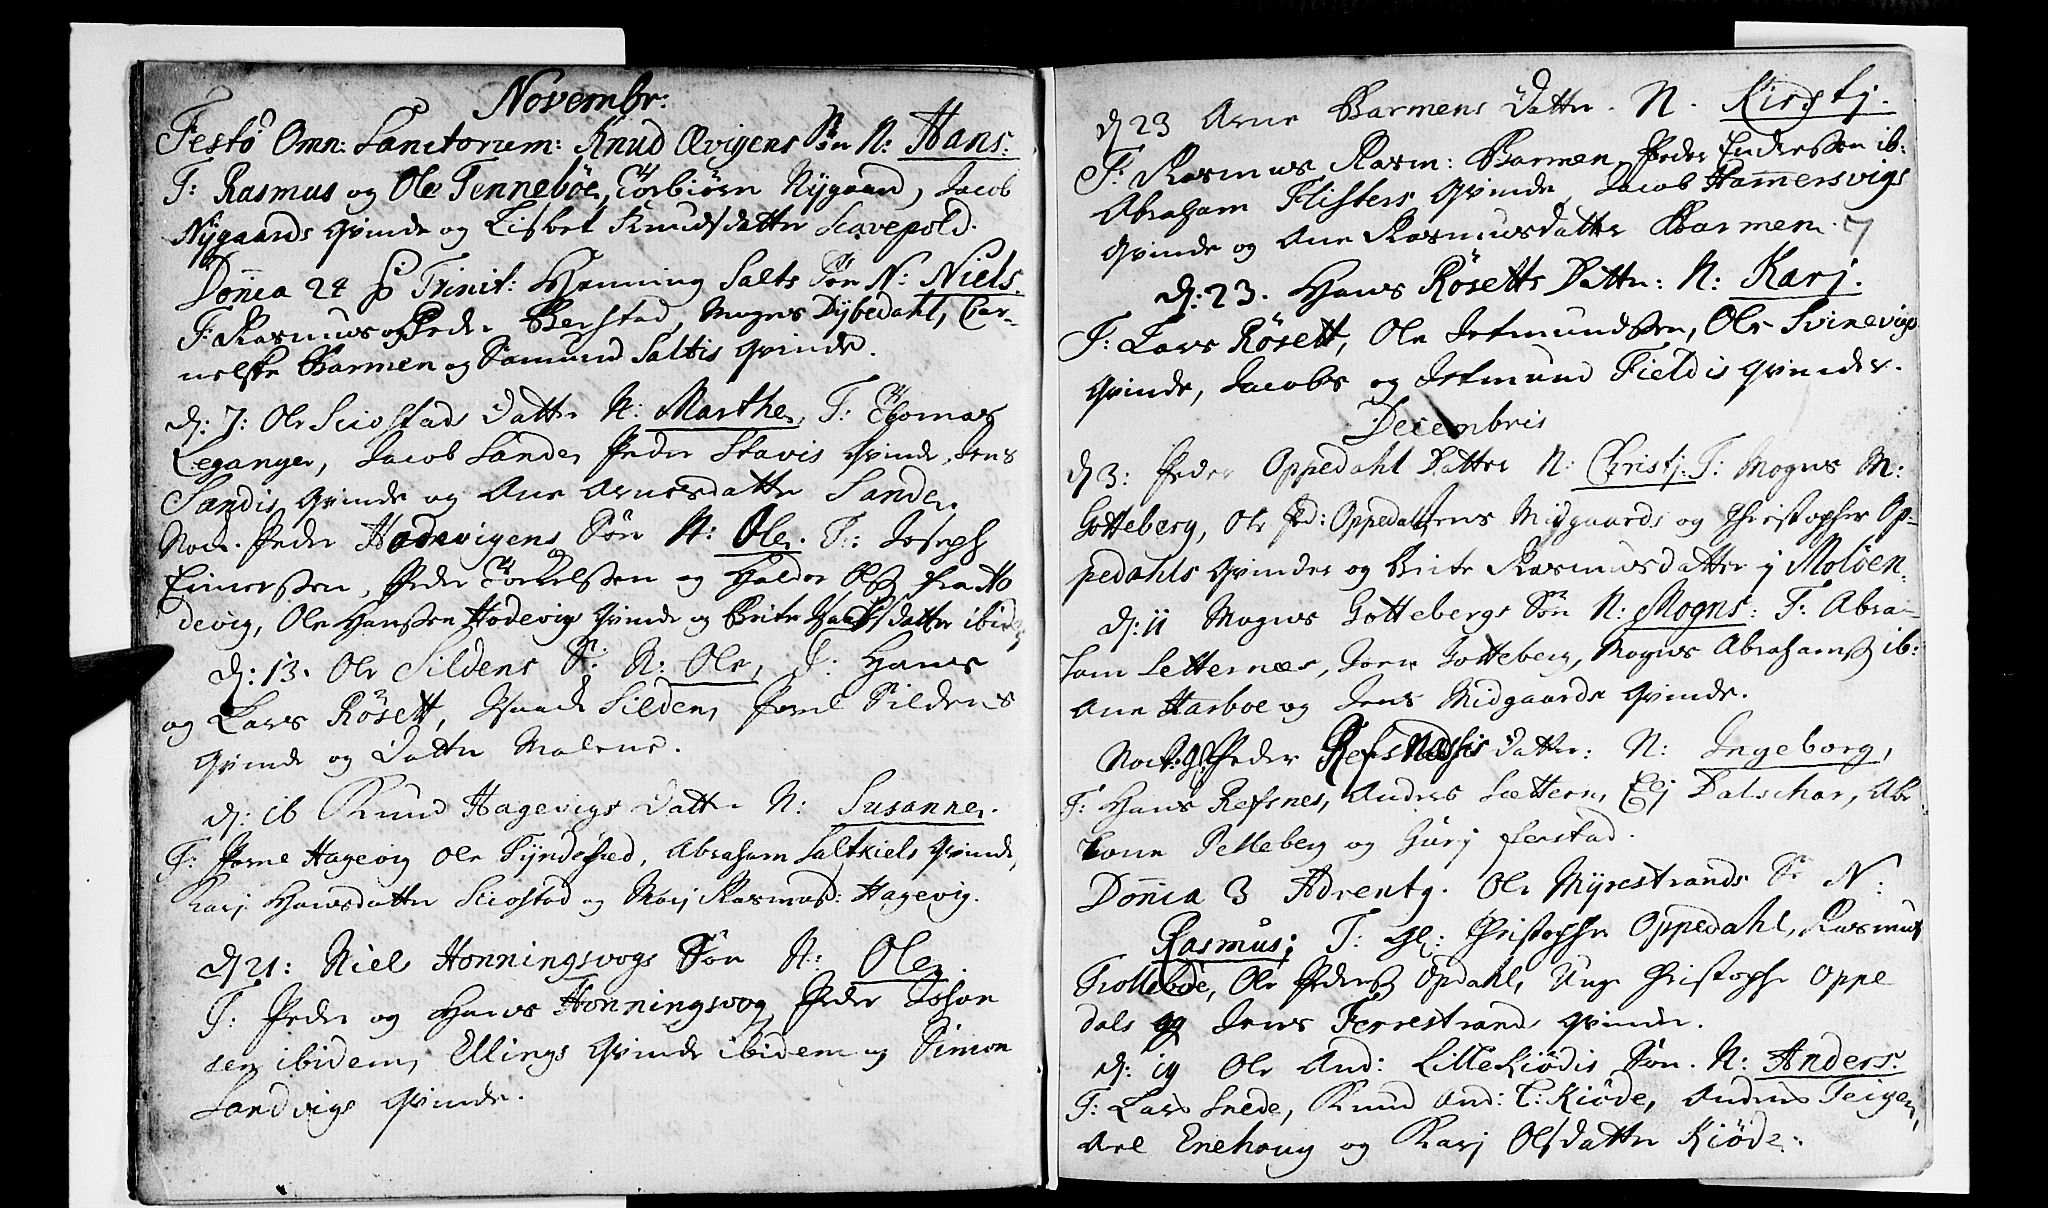 Novembr:
Festo Omn: Sanctorum: Knud Ervigens Søn N: Hans:
T: Rasmus og Ole Tennebøe, Torbiørn Nÿgaard, Jacob
Nÿgaards qvinde og Lisbet Knudsdatter Scavepold.
Don̄ca 24 p Trinit: Henning Salts Søn N: Niels.
T: Rasmus og Peder Berstad, Mogns Dÿbedahl, Cor-
nelske Barmen og Samund Saltis qvinde.
d: 7: Ole Sciostads Datter N: Marthe, T: Thomas
Leganger, Jacob Sande, Peder Stavis qvinde, Jens
Sandis qvinde og Ane Arnesdatter Sande.
Noct. Peder Hodevigens Søn N: Ole. T: Joseph
Einerssen, Peder Torkelssen og Haldor Olss fra Ho
devig, Ole Hanssen Hodevigs qvinde og Brite datter ibid
d: 13. Ole Sildens S: N: Ole, T: Hans
og Lars Røsett, Silden, Povel Sildens
qvinde og Datter Malene.
d: 16 Knud Hagevigs Datter N: Susanne.
T: Povel Hagevig Ole Tÿndefied, Abraham Saltkiels qvinde,
Karj Hansdatter Sciostad og Marj Rasmusd: Hagevig.
d 21: Niels Honningsvogs Søn N: Ole.
T: Peder og Hans Honningsvog, Peder Johan
sen ibidem, Ellings qvinde ibidem og Simon
Sandvigs qvinde.
d 23 Arne Barmens Datter. N. Kirstj.
T: Rasmus Rasm: Barmen, Peder Enderssen ib:
Abraham Flisters qvinde, Jacob Ham̄ersvigs
qvinde og Ane Rasmusdatter Barmen. 7
d: 23. Hans Røsetts Datter: N: Karj.
T: Lars Røsett, Ole Jetmundssen, Ole Svinevigs
qvinde, Jacobs og Jetmund Fieldis qvinder.
Decembris
d 3: Peder Oppedahl Datter N: Christj: T: Mogns M:
Gotteberg, Ole Ped: Oppedal, Jens Midgaards og Christopher Op-
pedahls qvinder og Brite Rasmusdatter j Moløen.
d: 11 Mogns Gottebergs Søn N: Mogns: T: Abra-
ham Letternes, Jone Gotteberg, Mogns Abrahamss ib:
Ane Harboe og Jens Midgaards qvinde.
Noct: Peder Refsnessis Datter: N: Ingeborg,
T: Hans Refsnes, Anders Sættern, Elj Dalschar, Abe
lone Pelleberg og Gurj Ferstad.
Don̄ca 3 Adventg. Ole Mÿrestrands S: N:
Rasmus; T: gl: Christopher Oppedahl, Rasmus
Trollebøe, Ole Pederss Opdahl, Unge Christopher Oppe
dals og Jens Ferrestrands qvinder.
d: 19 Ole And: Lillekiødis Søn. N: Anders.
T: Lars Snede, Knud And: L: Kiøde, Anders Teigen,
Enehoug og Karj Olsdatter Kiøde.